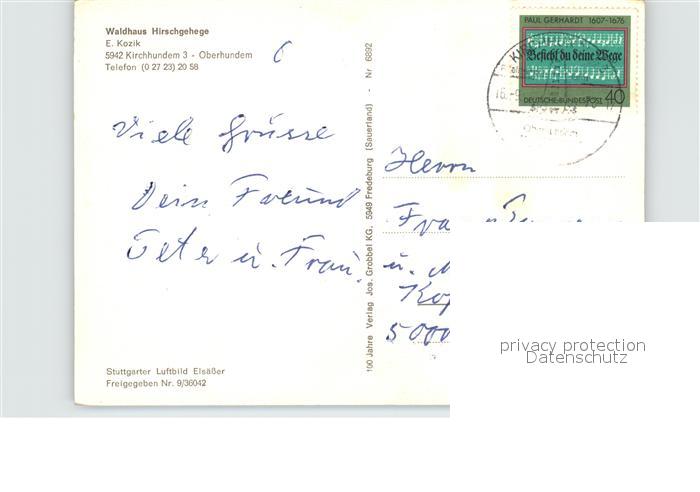 Waldhaus Hirschgehege
E. Kozik
5942 Kirchhundem 3 - Oberhundem
Telefon (0 27 23) 20 58
6
PAUL GERHARDT 1607-1676
Befiehl du deine Wege
DEUTSCHE BUNDESPOST 40
Viele Grüsse
Dein Freund
Peter u. Frau.
100 Jahre Verlag Jos. Grobbel KG, 5949 Fredeburg (Sauerland) - Nr 6892
Herrn
u.
5000
Stuttgarter Luftbild Elsäßer
Freigegeben Nr. 9/36042
privacy protection
Datenschutz